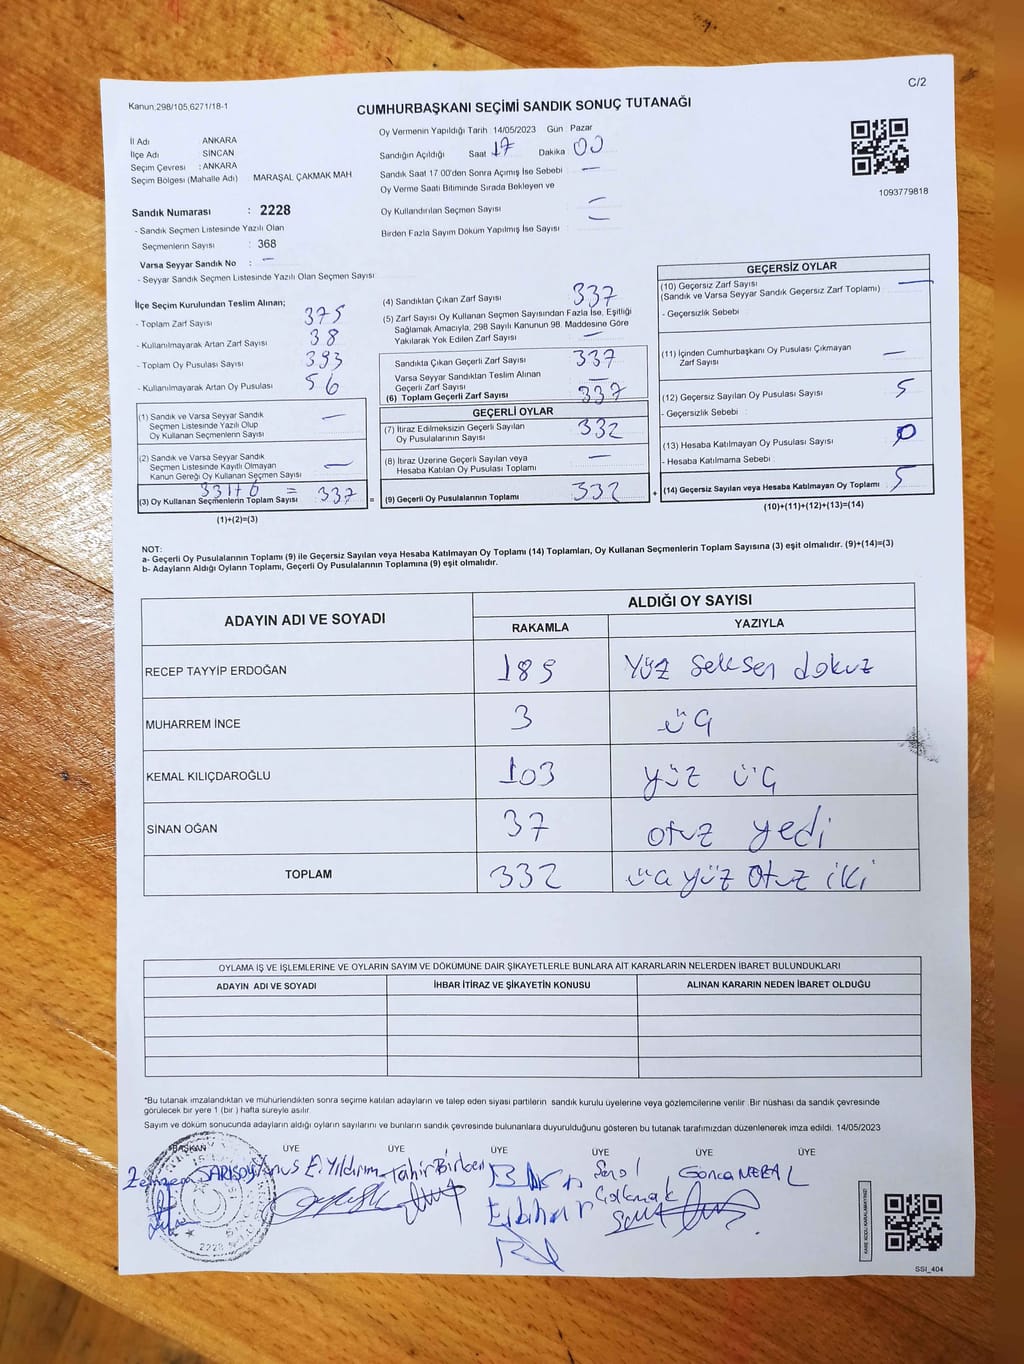 C/2
Kanun,298/105,6271/18-1
CUMHURBAŞKANI SEÇİMİ SANDIK SONUÇ TUTANAĞI
İl Adı ANKARA
İlçe Adı SİNCAN
Seçim Çevresi : ANKARA
Seçim Bölgesi (Mahalle Adı) MARAŞAL ÇAKMAK MAH
Sandık Numarası : 2228
- Sandık Seçmen Listesinde Yazılı Olan
Seçmenlerin Sayısı : 368
Varsa Seyyar Sandık No : –
- Seyyar Sandık Seçmen Listesinde Yazılı Olan Seçmen Sayısı
Oy Vermenin Yapıldığı Tarih 14/05/2023 Gün Pazar
Sandığın Açıldığı Saat 17 Dakika 00
Sandık Saat 17 00'den Sonra Açımış İse Sebebi –
Oy Verme Saati Bitiminde Sırada Bekleyen ve
Oy Kullandırılan Seçmen Sayısı –
Birden Fazla Sayım Döküm Yapılmış İse Sayısı –
1093779818
İlçe Seçim Kurulundan Teslim Alınan;
- Toplam Zarf Sayısı 375
- Kullanılmayarak Artan Zarf Sayısı 38
- Toplam Oy Pusulası Sayısı 393
- Kullanılmayarak Artan Oy Pusulası 56
(1) Sandık ve Varsa Seyyar Sandık
Seçmen Listesinde Yazılı Olup
Oy Kullanan Seçmenlerin Sayısı –
(2) Sandık ve Varsa Seyyar Sandık
Seçmen Listesinde Kayıtlı Olmayan
Kanun Gereği Oy Kullanan Seçmen Sayısı –
331+6 = 337
(3) Oy Kullanan Seçmenlerin Toplam Sayısı
(1)+(2)=(3)
(4) Sandıktan Çıkan Zarf Sayısı 337
(5) Zarf Sayısı Oy Kullanan Seçmen Sayısından Fazla İse, Eşitliği
Sağlamak Amacıyla, 298 Sayılı Kanunun 98. Maddesine Göre
Yakılarak Yok Edilen Zarf Sayısı –
Sandıkta Çıkan Geçerli Zarf Sayısı 337
Varsa Seyyar Sandıktan Teslim Alınan
Geçerli Zarf Sayısı –
(6) Toplam Geçerli Zarf Sayısı 337
GEÇERLİ OYLAR
(7) İtiraz Edilmeksizin Geçerli Sayılan
Oy Pusulalarının Sayısı 332
(8) İtiraz Üzerine Geçerli Sayılan veya
Hesaba Katılan Oy Pusulası Toplamı –
= (9) Geçerli Oy Pusulalarının Toplamı 332
GEÇERSİZ OYLAR
(10) Geçersiz Zarf Sayısı –
(Sandık ve Varsa Seyyar Sandık Geçersiz Zarf Toplamı)
- Geçersizlik Sebebi
(11) İçinden Cumhurbaşkanı Oy Pusulası Çıkmayan
Zarf Sayısı –
(12) Geçersiz Sayılan Oy Pusulası Sayısı 5
- Geçersizlik Sebebi
(13) Hesaba Katılmayan Oy Pusulası Sayısı 0
- Hesaba Katılmama Sebebi
+ (14) Geçersiz Sayılan veya Hesaba Katılmayan Oy Toplamı 5
(10)+(11)+(12)+(13)=(14)
NOT:
a- Geçerli Oy Pusulalarının Toplamı (9) ile Geçersiz Sayılan veya Hesaba Katılmayan Oy Toplamı (14) Toplamları, Oy Kullanan Seçmenlerin Toplam Sayısına (3) eşit olmalıdır. (9)+(14)=(3)
b- Adayların Aldığı Oyların Toplamı, Geçerli Oy Pusulalarının Toplamına (9) eşit olmalıdır.
ADAYIN ADI VE SOYADI ALDIĞI OY SAYISI
RAKAMLA YAZIYLA
RECEP TAYYİP ERDOĞAN 189 Yüz seksen dokuz
MUHARREM İNCE 3 üç
KEMAL KILIÇDAROĞLU 103 yüz üç
SİNAN OĞAN 37 otuz yedi
TOPLAM 332 üç yüz otuz iki
OYLAMA İŞ VE İŞLEMLERİNE VE OYLARIN SAYIM VE DÖKÜMÜNE DAİR ŞİKAYETLERLE BUNLARA AİT KARARLARIN NELERDEN İBARET BULUNDUKLARI
ADAYIN ADI VE SOYADI İHBAR İTİRAZ VE ŞİKAYETİN KONUSU ALINAN KARARIN NEDEN İBARET OLDUĞU
*Bu tutanak imzalandıktan ve mühürlendikten sonra seçime katılan adayların ve talep eden siyasi partilerin sandık kurulu üyelerine veya gözlemcilerine verilir .Bir nüshası da sandık çevresinde
görülecek bir yere 1 (bir ) hafta süreyle asılır.
Sayım ve döküm sonucunda adayların aldığı oyların sayılarını ve bunların sandık çevresinde bulunanlara duyurulduğunu gösteren bu tutanak tarafımızdan düzenlenerek imza edildi. 14/05/2023
BAŞKAN ÜYE ÜYE ÜYE ÜYE ÜYE ÜYE
SARISOY Yunus E. Yıldırım Tahir Birben Gonca MERAL
2228
KARE KODU KARALAMAYINIZ!
SSI_404